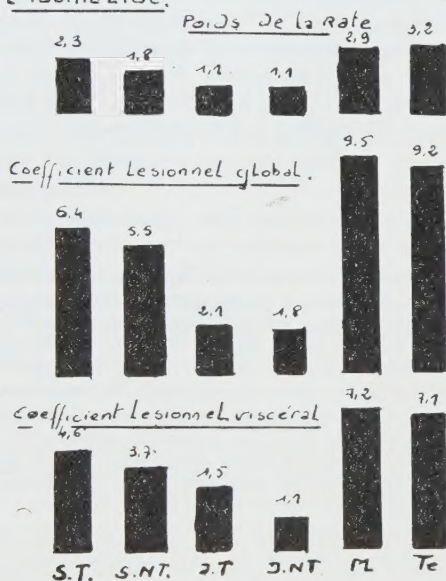 Poids de la Rate
2,3 1,8 1,1 1,1 2,9 3,2
Coefficient Lesionnel global.
6,4 5,5 2,1 1,8 9.5 9,2
Coefficient Lesionnel viscéral
4,6 3,7 1,5 1,1 7,2 7,1
S.T. S.NT. J.T J.NT. M Te